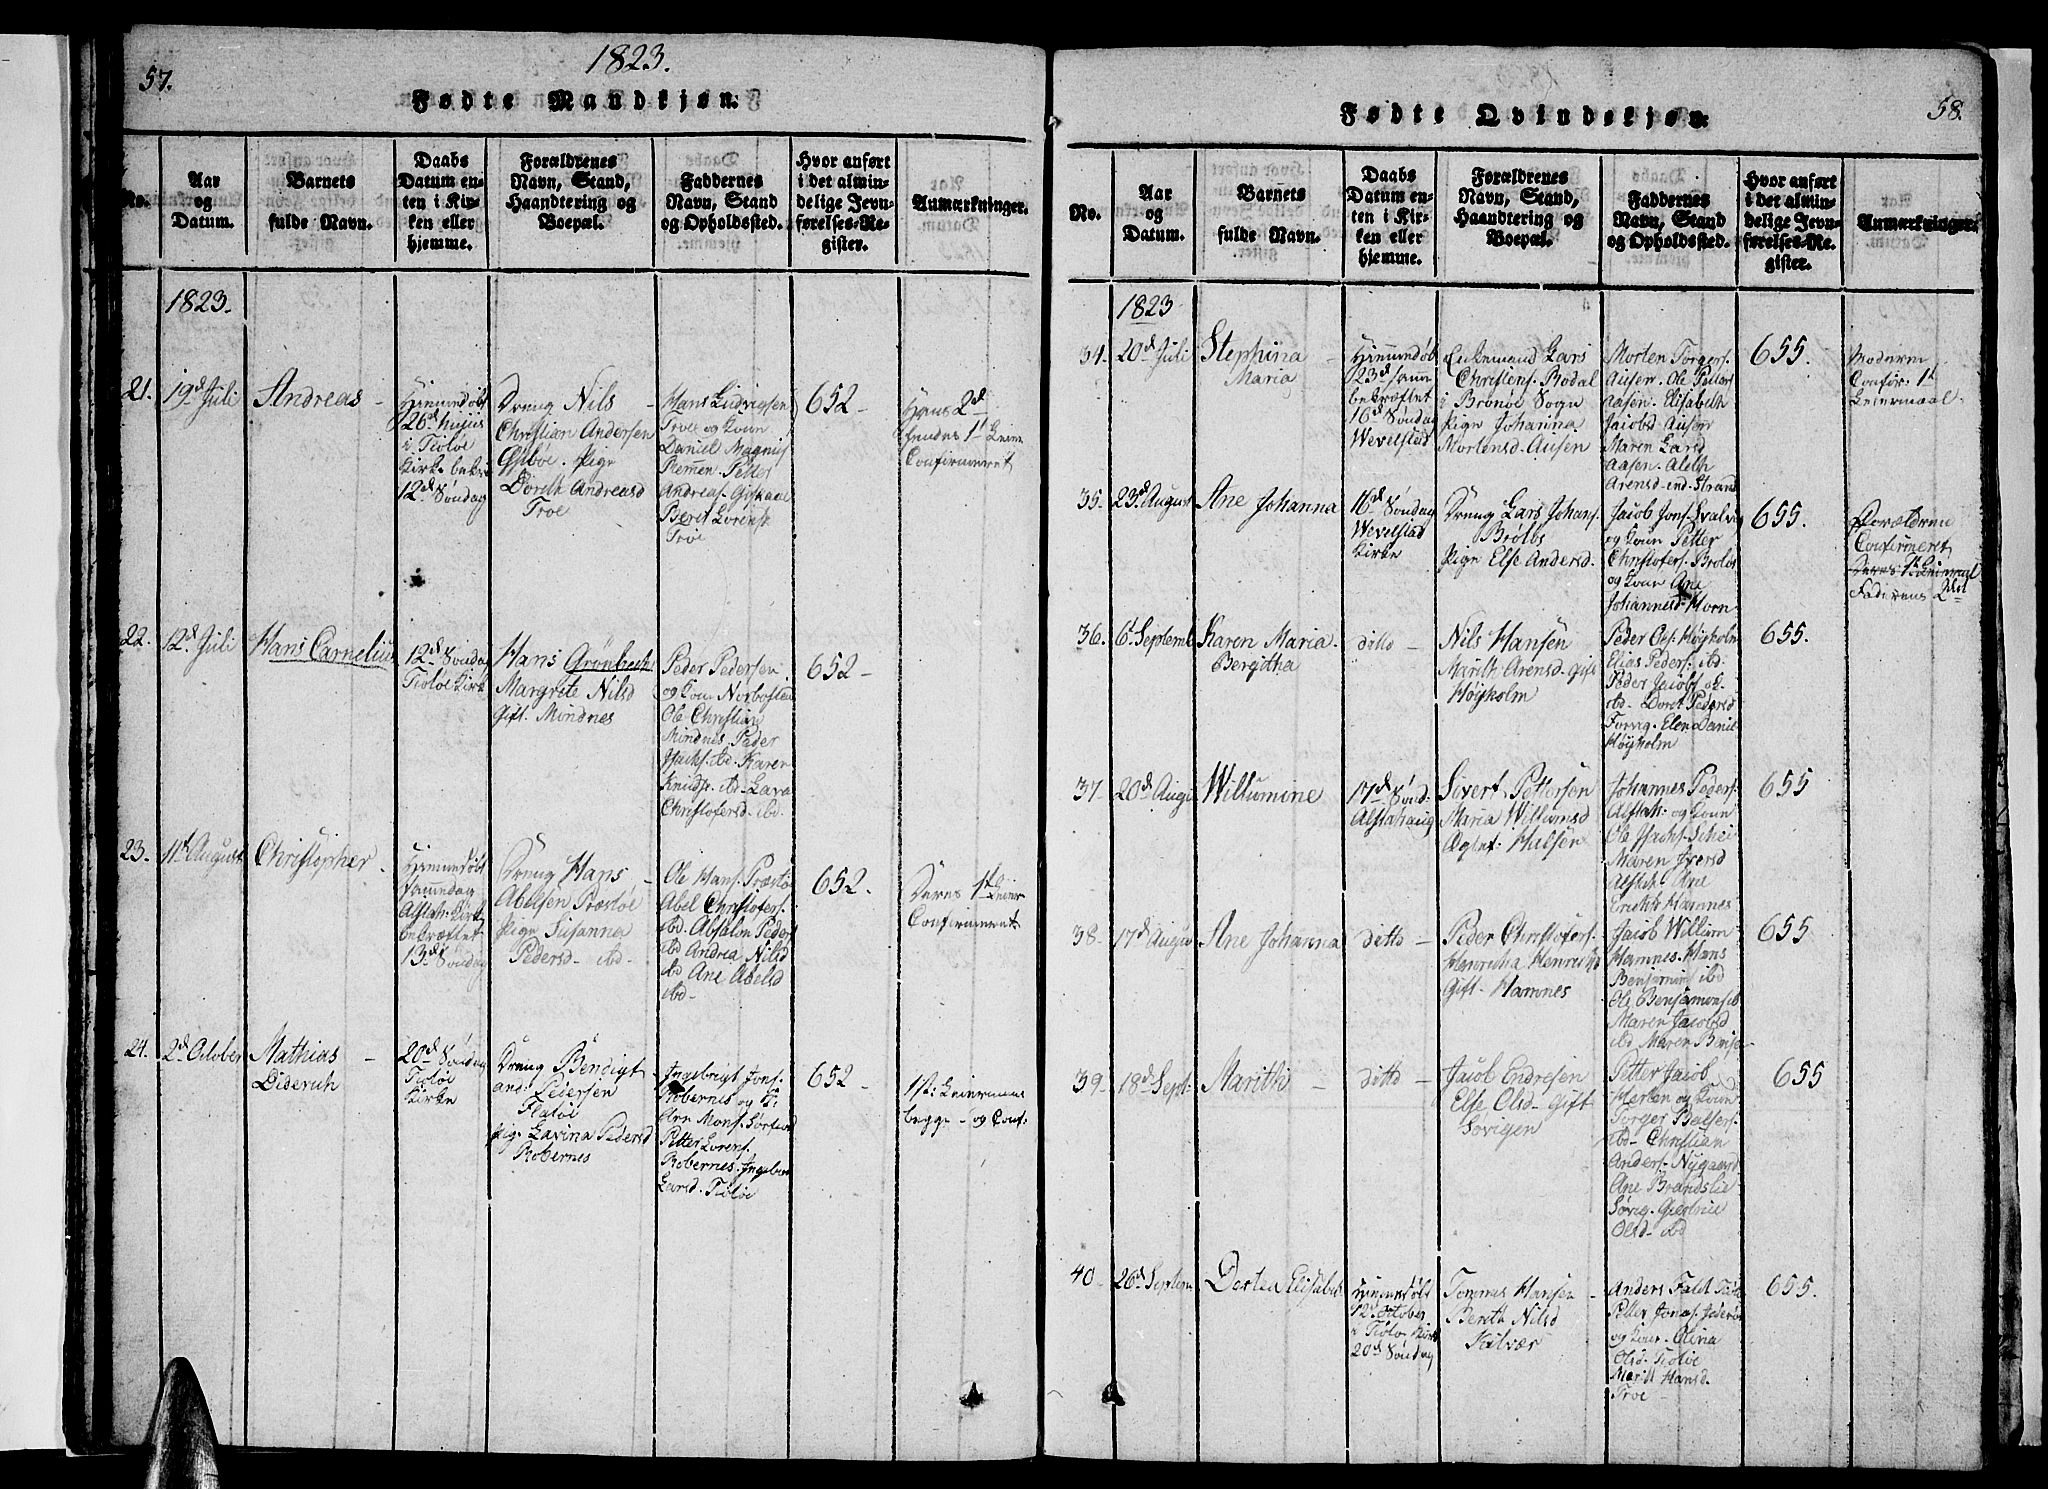 57.
1823.
Fødte Mandkjøn.
No.
Aar og Datum.
Barnets fulde Navn.
Daabs Datum enten i Kirken eller hjemme.
Forældrenes Navn, Stand, Haandtering og Boepæl.
Faddernes Navn, Stand og Opholdssted.
Hvor anført i det almindelige Jevnførelses-Register.
Anmærkninger.
1823.
21.
19d Juli
Andreas -
Hiemmedøbt
26d hujus
i Tiøtøe
Kirke bekr.
12d Søndag
Dreng Nils
Christian Andersen
Pige
Doreth Andreasd
Troe
Hans Ludvigsen
Troe og Kone
Daniel Magnus
Remen. Petter
Andreas.
Beret Lorens.
Troe
652 -
Hans 2d
1t Leierm
Confirmeret
22.
12d Juli
Hans Carnelius
12d Søndag
Tiøtøe Kirke
Hans Grønbech
Margrete Nilsd
Gift. Mindnes
Peder Pedersen
og Kone
Ole Christian
Mindnes. Peder
Isachs. ibd. Karen
Knuds. ibd. Lava
Christofersd. ibd.
652 -
23.
11t August
Christopher.
Hiemmedøbt
samme dag
Alstah. Kirke
bekræftet
13d Søndag
Dreng Hans -
Abelsen Præstøe
Pige Susanna
Pedersd - ibd -
Ole Hans. Præstø
Abel Christofers.
ibd. Absalon Peders
ibd Andrea Nilsd
ibd Ane Abelsd
ibd -
652.
Deres 1st Leier
Confirmeret
24.
2d October
Mathias -
Diderich
20d Søndag
Tiøtøe
Kirke
Dreng Bendigt
Pedersen
Flatøe
Pige Lavina Pedersd
Robernes
Ingebrigt Jons.
Robernes og K:
Arn Mons.
Petter Lorens.
Robernes. Ingebor
Larsd. Tiøtøe
652 -
1st: Leiermaal
begge - og Conf:
58.
Fødte Qvindekjøn.
No.
Aar og Datum.
Barnets fulde Navn.
Daabs Datum enten i Kirken eller hjemme.
Forældrenes Navn, Stand, Haandtering og Boepæl.
Faddernes Navn, Stand og Opholdssted.
Hvor anført i det almindelige Jevnførelses-Register.
Anmærkninger.
1823
34.
20d Juli
Stephina -
Maria
Hiemmedøb
23d samme
bekræftet
16d Søndag
Wevelstad
Enkemand Lars
Christens. Bodal
i Brønøe Sogn
Pige Johanna
Mortensd. Ausen
Morten Torgers.
Ausen. Ole Petters
Aasen. Elisabeth
Jacobsd. Ausen
Maren Larsd
Aasen. Aleth
Arensd. ind. Strand
655.
Moderen
Confir. 1t
Leiermaal.
35.
23d August
Ane Johanna
16d Søndag
Wevelstad
Kirke
Dreng Lars Johans.
Brøløs
Pige Else Andersd.
Jacob Jons.
og Kone Petter
Christofers. Brøløs
og Kone Ane
Johannesd. Horn
655.
Forældrene
Confirmeret
Deres 1t Leiermaal
Faderens 2det
36.
6t Septemb
Karen Maria
Bergitha
ditto -
Nils Hansen
Marith Arensd. Gift
Høyholm
Peder Ols. Høyholm
Elias Peders. ibd.
Peder Jacobs.
ibd. Doret Pedersd
Forvig. Elen Daniel
Høyholm
655.
37.
20d Augu
Willumine
17d Sønd:
Alstahaug
Sivert Pettersen
Maria Willumsd
Hulsen
Johannes Peders.
Alstah: og Kone
Ole Isachs. Schei
Maren Iversd
Alstah. Ane
Erichs Hamnes
655
38.
17d Augu
Ane Johanna
ditto -
Peder Christofers.
Henricha Henrichsd
Gift. Hamnes
Jacob Willum
Hamnes. Hans
Benjamins ibd
Ole Benjamons. ib
Maren Jacobsd
ibd Maren Benja
655
39.
18d Sept:
Marith -
ditto -
Jacob Endresen
Else Olsd - Gift
Søvigen
Petter Jacob
og Kone
Torger Baltsers.
ibd - Christian
Anders. Nygaard
Ane
Søvig.
Olsd - ibd
655
40 -
26d Septem
Dortea Elisabet
Hiemmedøbt
12d October
i Tiøtø Kirk
20d Søndag
Tommes Hansen -
Bereth Nilsd
Kalvær
Anders Falch Tiøtø
Petter Jonas.
og Kone. Olina
Olsd. Tiøtøe
Marit Hansd.
Troe -
655.